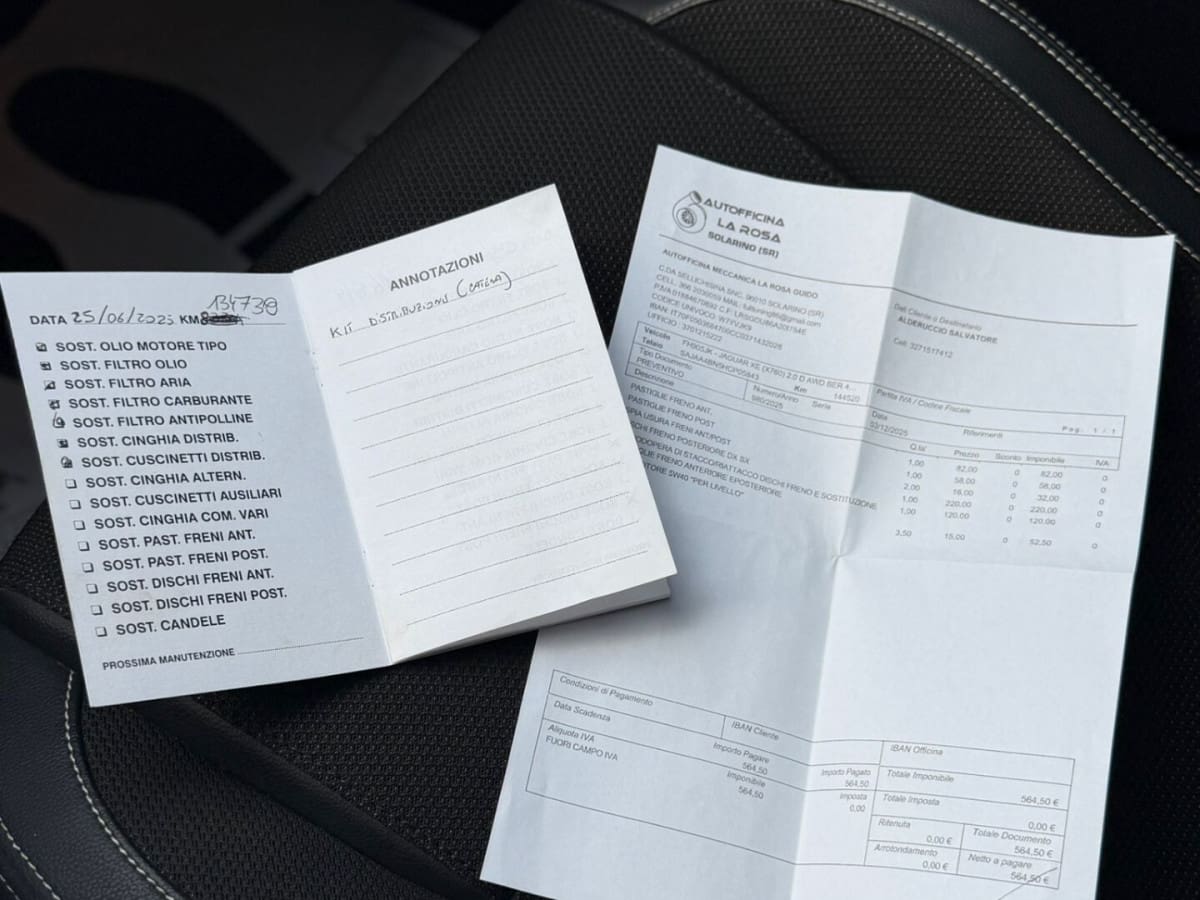 DATA 25/06/2025 KM 134739
SOST. OLIO MOTORE TIPO
SOST. FILTRO OLIO
SOST. FILTRO ARIA
SOST. FILTRO CARBURANTE
SOST. FILTRO ANTIPOLLINE
SOST. CINGHIA DISTRIB.
SOST. CUSCINETTI DISTRIB.
SOST. CINGHIA ALTERN.
SOST. CUSCINETTI AUSILIARI
SOST. CINGHIA COM. VARI
SOST. PAST. FRENI ANT.
SOST. PAST. FRENI POST.
SOST. DISCHI FRENI ANT.
SOST. DISCHI FRENI POST.
SOST. CANDELE
PROSSIMA MANUTENZIONE
ANNOTAZIONI
KIT DISTRIBUZIONE (CATENA)
AUTOFFICINA
LA ROSA
SOLARINO (SR)
AUTOFFICINA MECCANICA LA ROSA GUIDO
C.DA SELLICHISINA SNC. 96010 SOLARINO (SR)
CELL. 366 2036059 MAIL:
CODICE UNIVOCO: W7YVJK9
UFFICIO : 3701215222
Dati Cliente o Destinatario
ALDERUCCIO SALVATORE
Cell: 3271517412
Veicolo FH905JK - JAGUAR XE (X760) 2.0 D AWD BER.4... Km 144520
Telaio
Tipo Documento Numero/Anno Serie Data Riferimenti Pag. 1 / 1
PREVENTIVO 980/2025 03/12/2025
Partita IVA / Codice Fiscale
Descrizione Q.ta' Prezzo Sconto Imponibile IVA
PASTIGLIE FRENO ANT. 1,00 82,00 0 82,00 0
PASTIGLIE FRENO POST 1,00 58,00 0 58,00 0
PIA USURA FRENI ANT/POST 2,00 16,00 0 32,00 0
SCHI FRENO POSTERIORE DX SX 1,00 220,00 0 220,00 0
ODOPERA DI STACCO/RIATTACCO DISCHI FRENO E SOSTITUZIONE 1,00 120,00 0 120,00 0
GLIE FRENO ANTERIORE EPOSTERIORE
OTORE 5W40 "PER LIVELLO" 3,50 15,00 0 52,50 0
Condizioni di Pagamento
IBAN Cliente
IBAN Officina
Data Scadenza Importo Pagare Importo Pagato
564,50 564,50
Aliquota IVA Imponibile Imposta
FUORI CAMPO IVA 564,50 0,00
Totale Imponibile 564,50 €
Totale Imposta 0,00 €
Ritenuta 0,00 €
Totale Documento 564,50 €
Arrotondamento 0,00 €
Netto a pagare 564,50 €